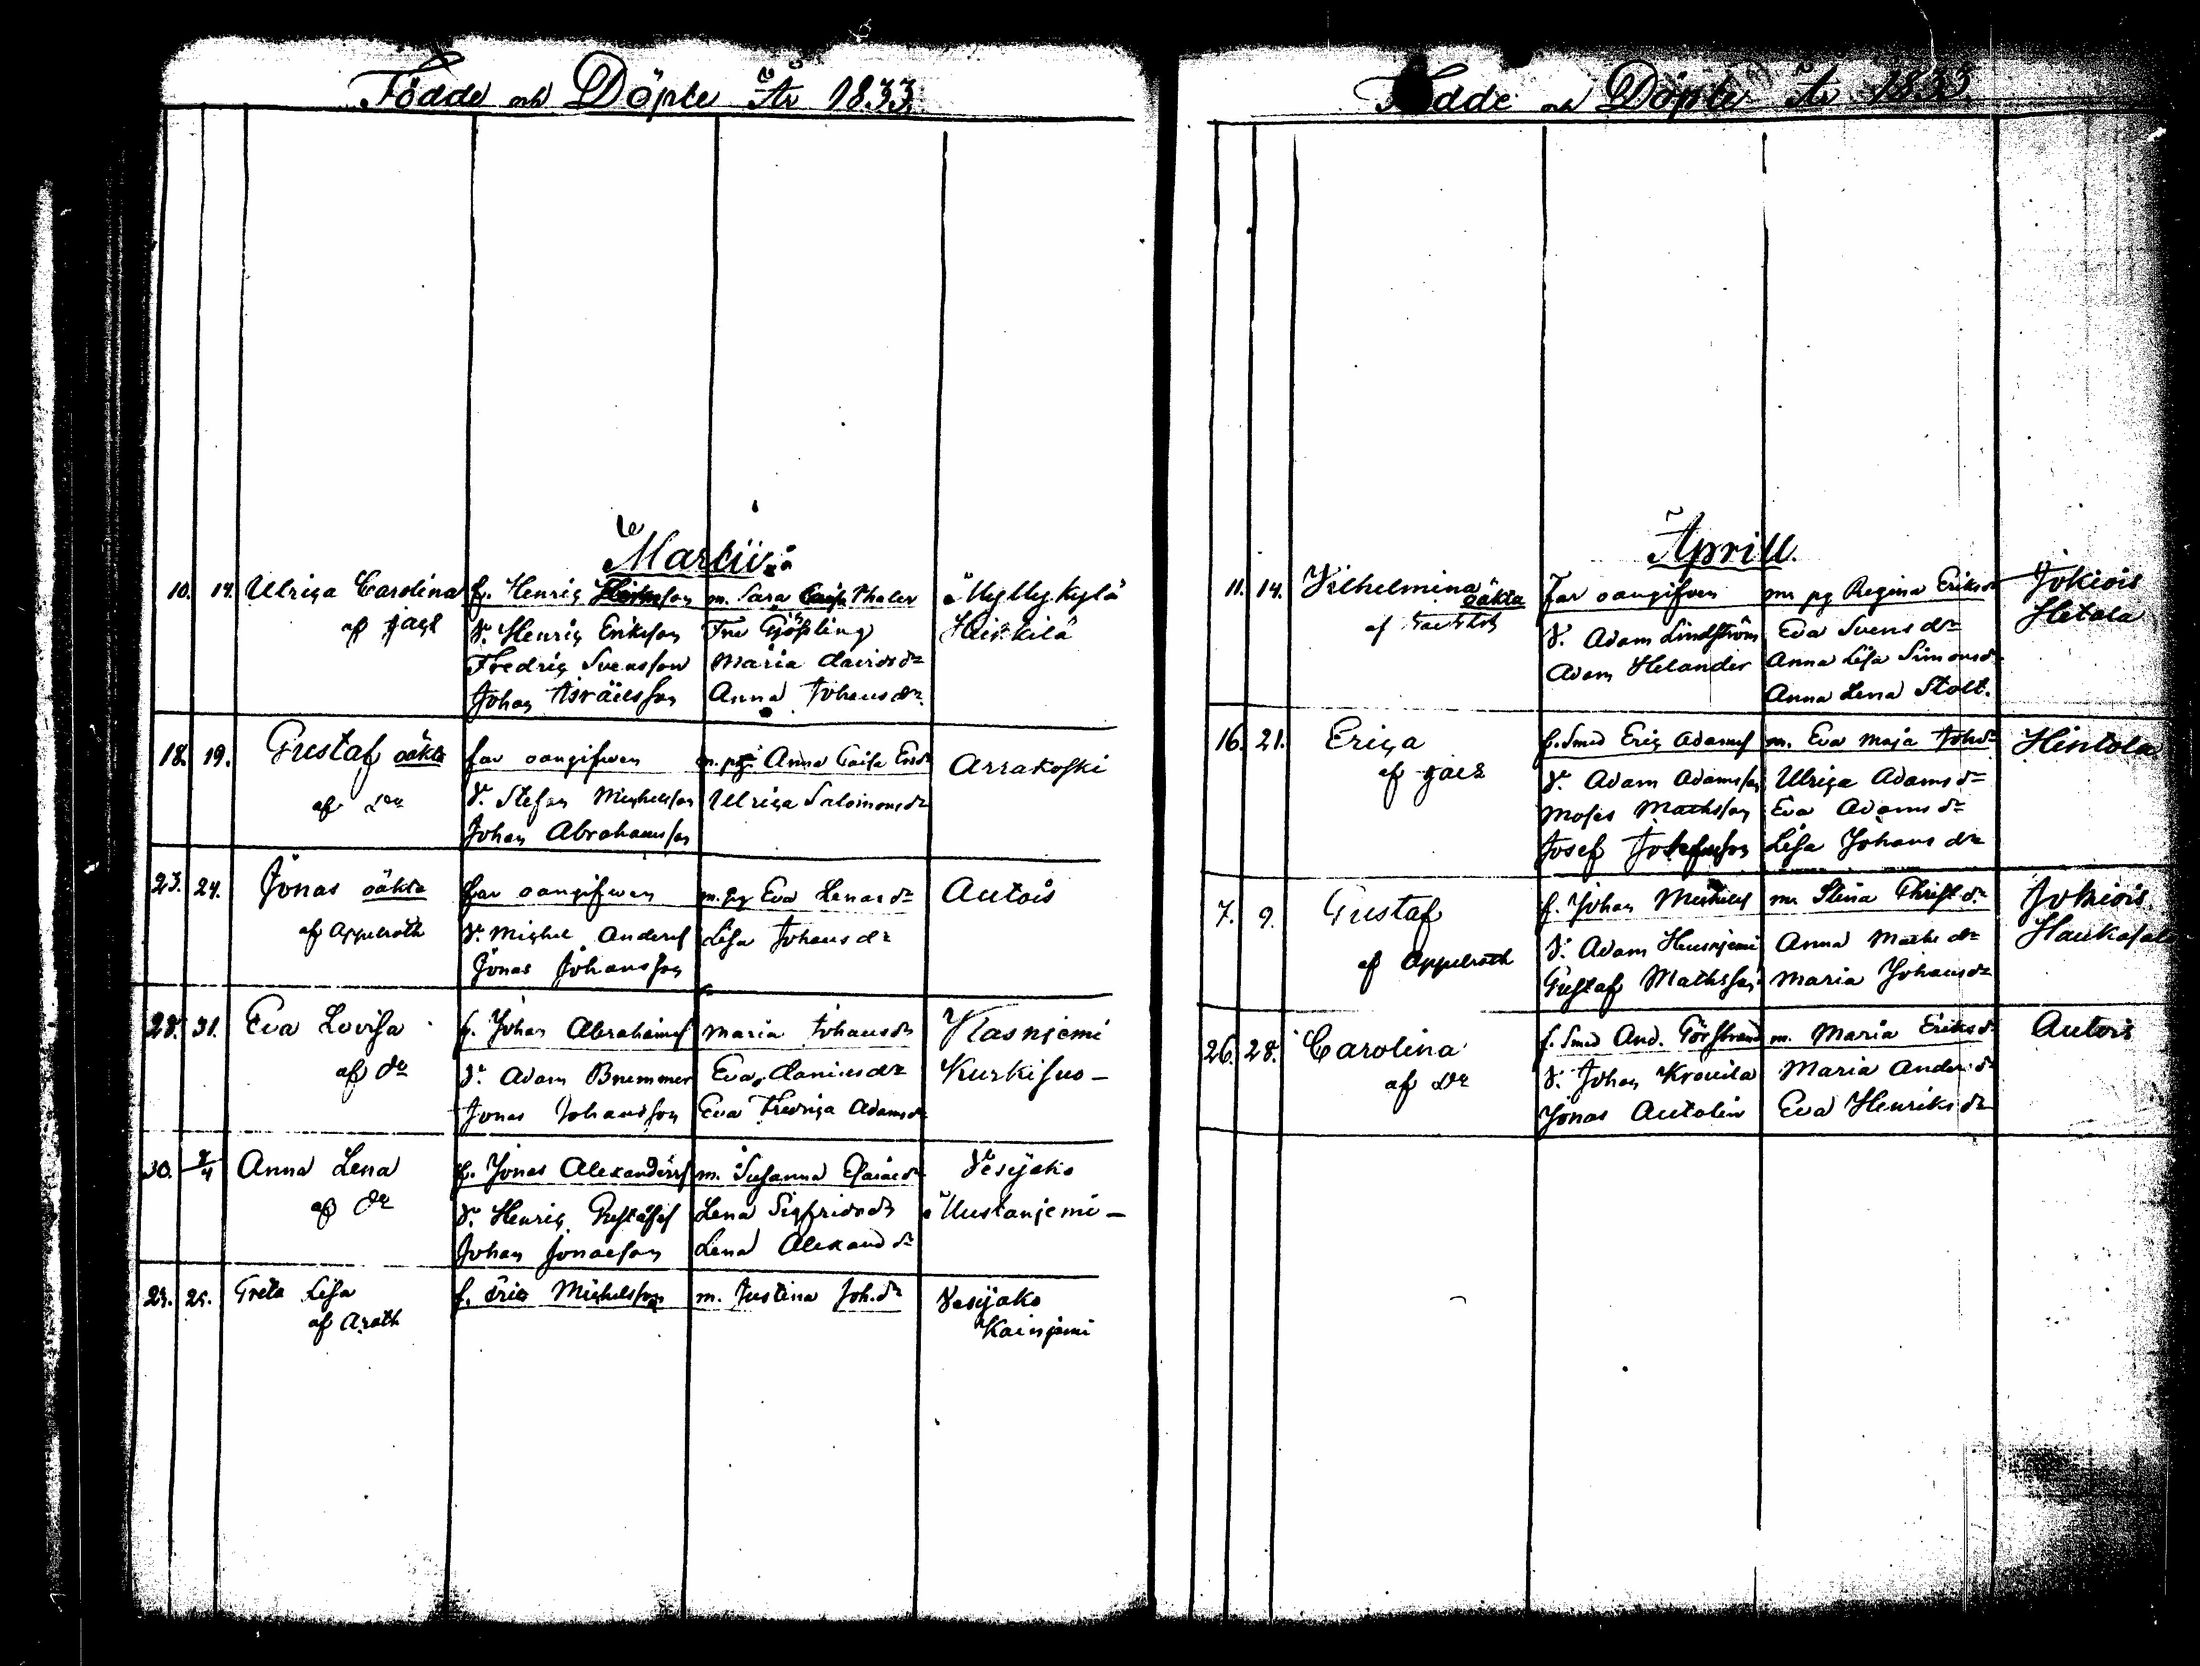 Födde och Döpte År 1833.
Martii
10. 14. Ulrica Carolina f. Henric m. Sara Caisa Thaler Myllykylä
af Jack V. Henric Eriksson Fru Gjöshling Heikkilä
Fredric Svensson Maria Davidsdr
Johan Israelsson Anna Johansdr
18. 19. Gustaf oäkta far oangifwen m. pg. Anna Caisa Ersdr Arrakoski
af Dr V. Stefan Michelsson Ulrica Salomonsdr
Johan Abrahamsson
23. 24. Jonas oäkta far oangifwen m. pg Eva Lenasdr Autois
af Appelroth V. Michel Anderss Lisa Johansdr
Jonas Johansson
28. 31. Eva Lovisa f. Johan Abrahamss Maria Johansdr Klasnjemi
af dr V. Adam Bremmer Eva Danielsdr Kurkisuo-
Jonas Johansson Eva Fredrica Adamsdr
30. Anna Lena f. Jonas Alexanderss m. Susanna Esaiaedr Vesijako
af dr V. Henric Gustafss Lena Sigfridsdr Uustanjemi-
Johan Jonaeson Lena Alexanddr
23. 25. Greta Lisa f. Eric Michelsson m. Justina Joh.dr Vesijako
af Aroth Kainjemi
Födde och Döpte År 1833
Aprill.
11. 14. Vilhelmina oäkta Far oangifven m pg Regina Eriksdr Jokiois
af V. Adam Lindström Eva Svensdr Hetala
Adam Helander Anna Lisa Simonsdr
Anna Lena Stolt.
16. 21. Erica f. Smed Eric Adamss m. Eva Maja Johdr Hintola
af Jack V. Adam Adamsson Ulrica Adamsdr
Moses Mathsson Eva Adamsdr
Josef Josefsson Lisa Johansdr
7. 9. Gustaf f. Johan Michelss m Stina Christdr Jokiois
af Appelroth V. Adam Husnjemi Anna Mathsdr Haukasalo
Gustaf Mathsson Maria Johansdr
26. 28. Carolina f. Smed And. Törstrand m. Maria Eriksdr Autois
af Dr V. Johan Krouila Maria Andersdr
Jonas Autolin Eva Henriksdr